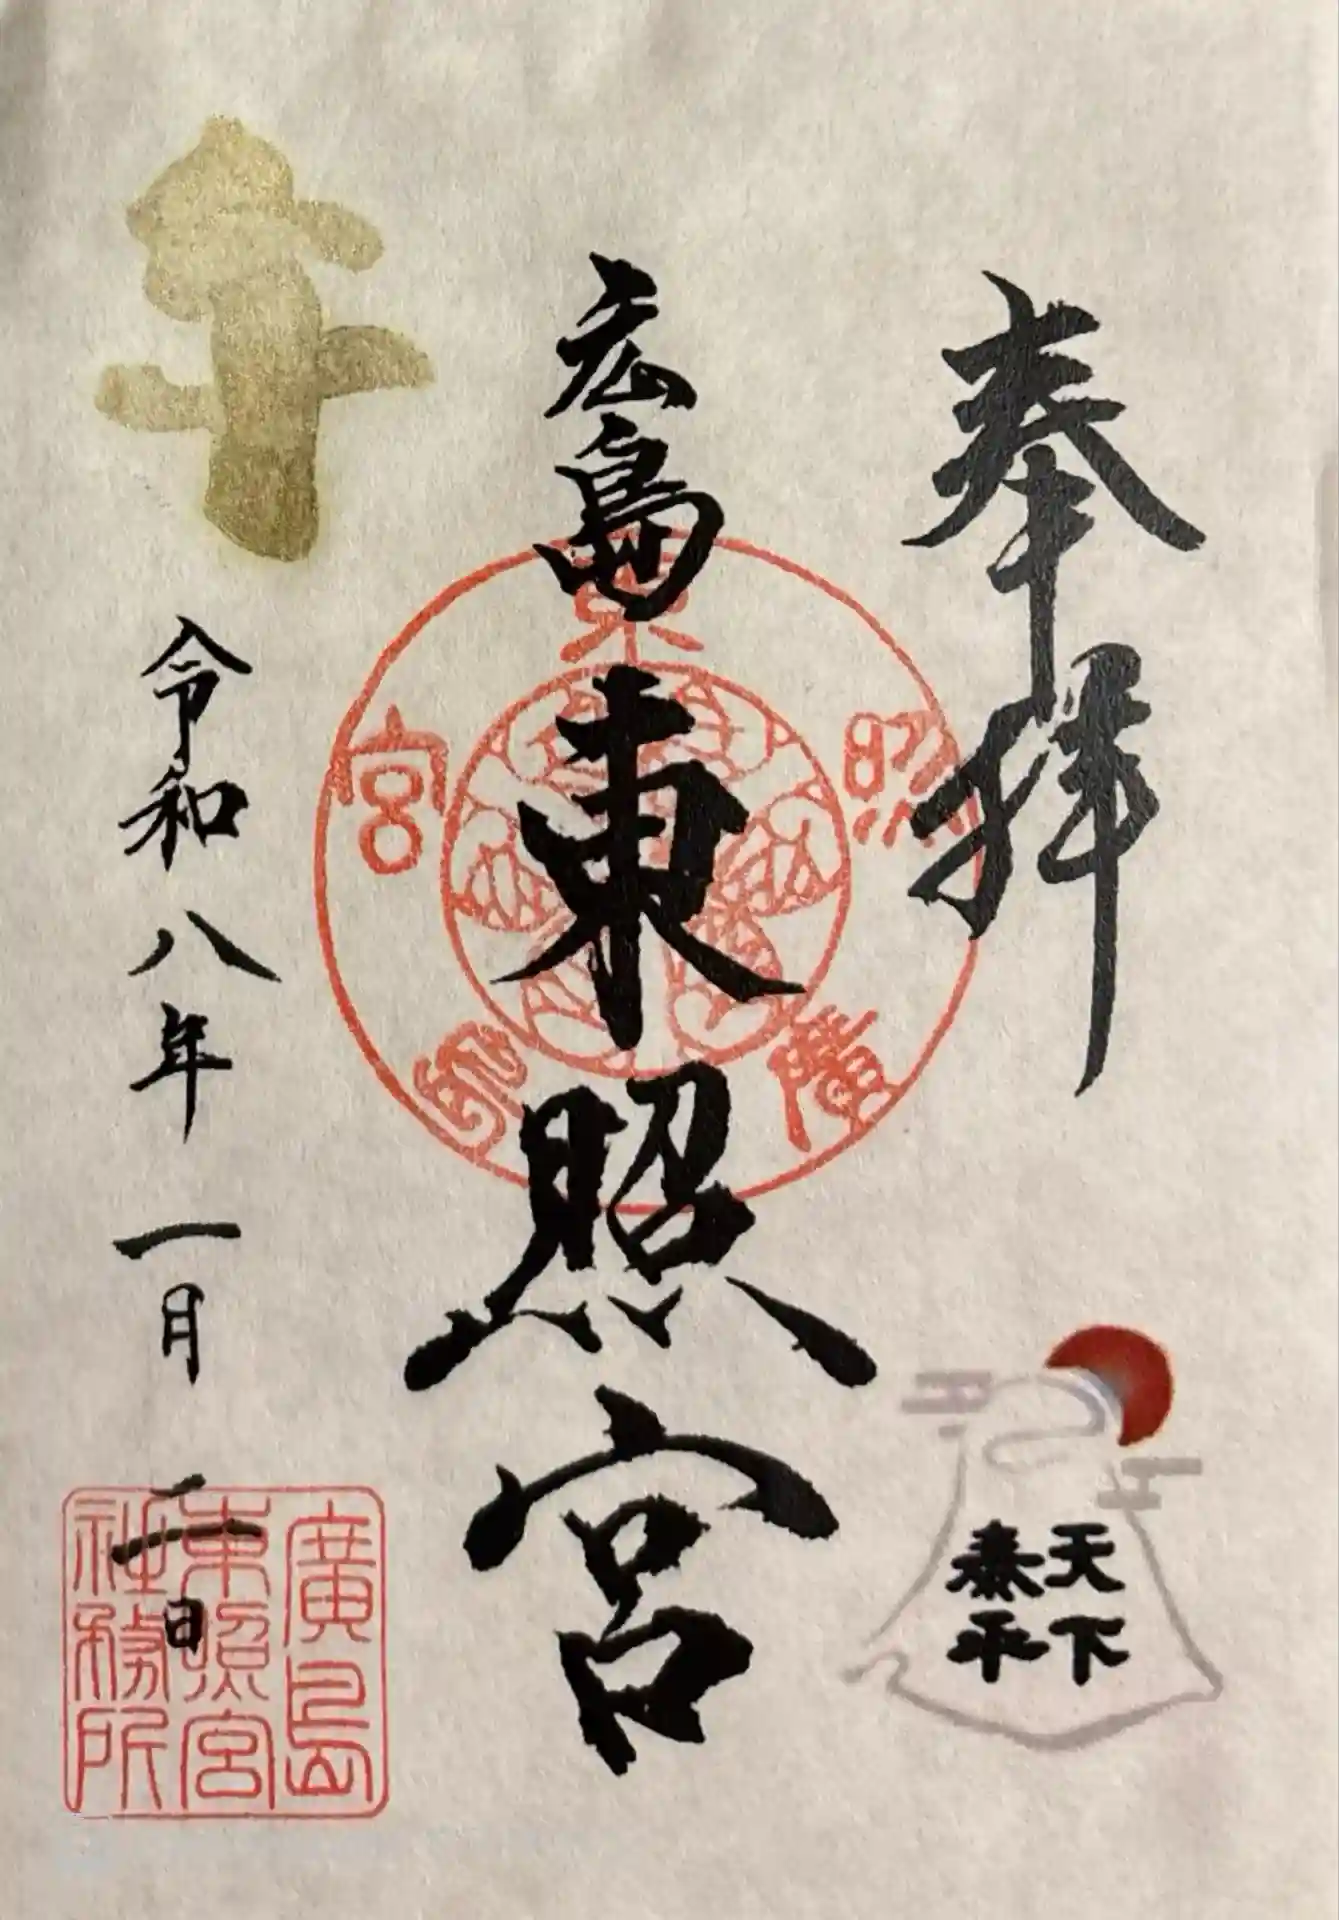 奉拝
天下
泰平
広島東照宮
東照宮廣島
午
令和八年一月二日
廣島
東照宮
社務所